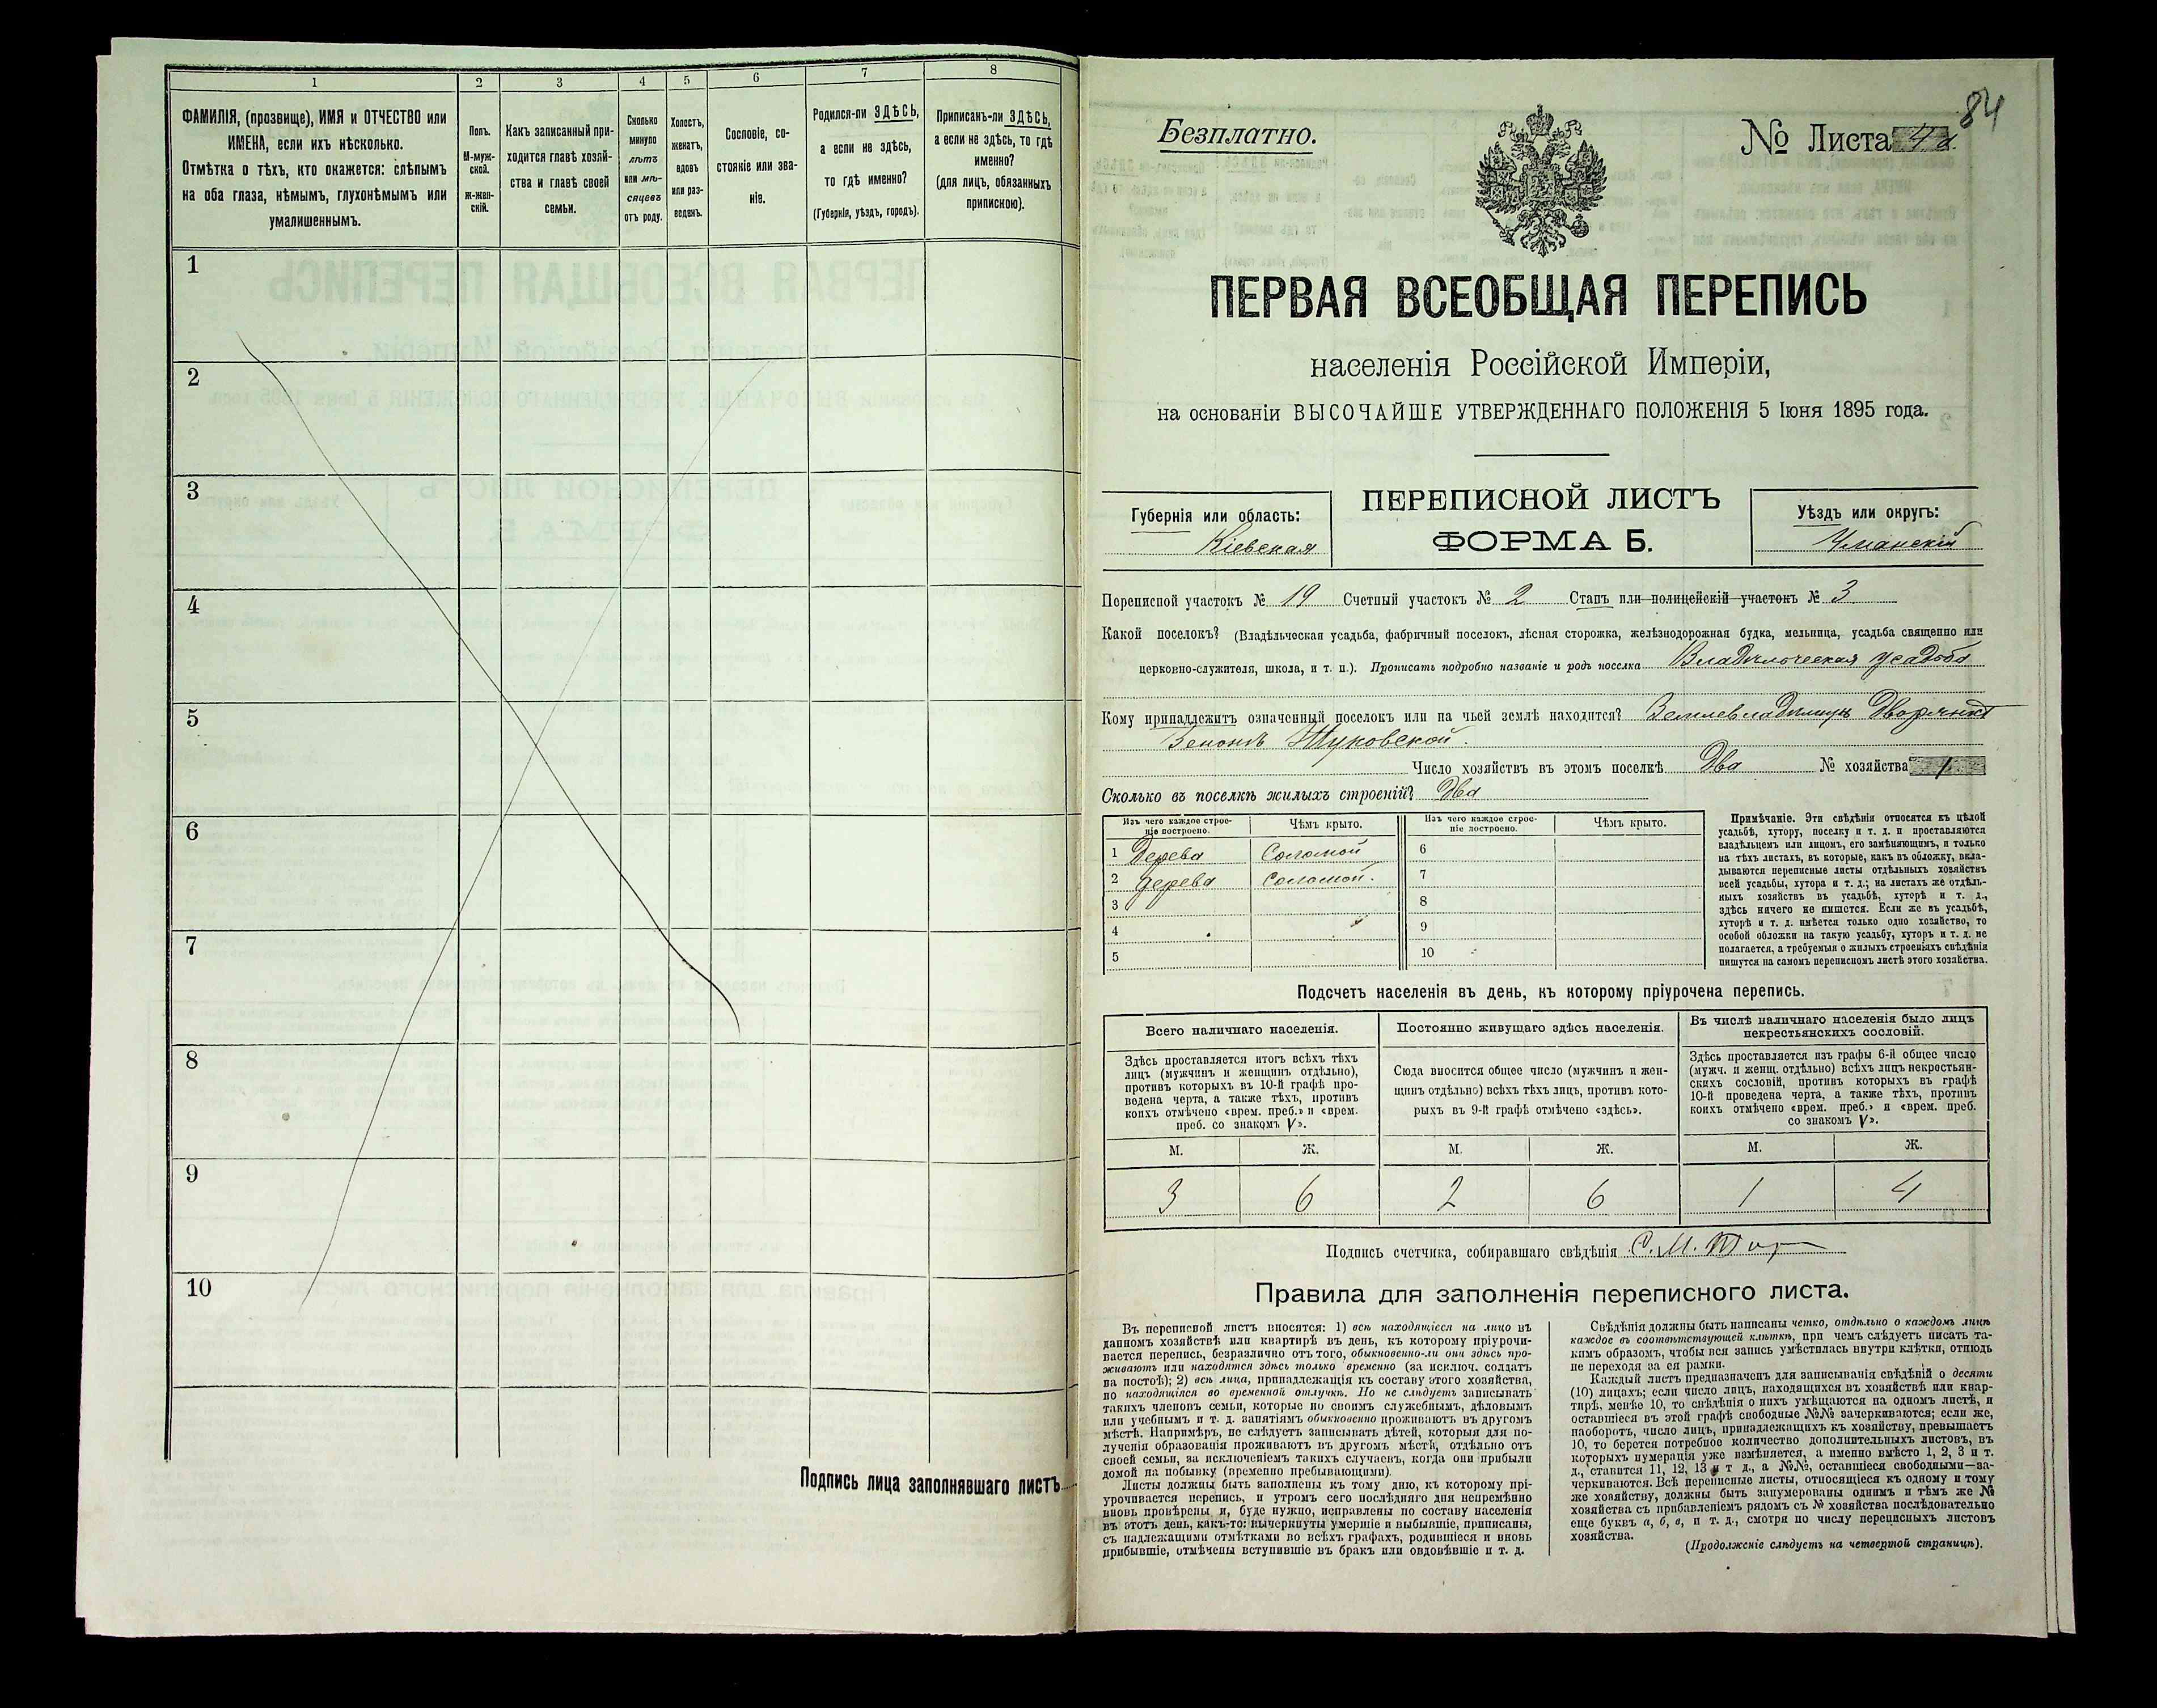 1 2 3 4 5 6 7 8
ФАМИЛІЯ, (прозвище), ИМЯ и ОТЧЕСТВО или
ИМЕНА, если ихъ нѣсколько.
Отмѣтка о тѣхъ, кто окажется: слѣпымъ
на оба глаза, нѣмымъ, глухонѣмымъ или
умалишеннымъ.
Полъ.
М-муж-
ской.
ж-жен-
скій.
Какъ записанный при-
ходится главѣ хозяй-
ства и главѣ своей
семьи.
Сколько
минуло
лѣтъ
или мѣ-
сяцевъ
отъ роду.
Холостъ,
женатъ,
вдовъ
или раз-
веденъ.
Сословіе, со-
стояніе или зва-
ніе.
Родился-ли ЗДѢСЬ,
а если не здѣсь,
то гдѣ именно?
(Губернія, уѣздъ, городъ).
Приписанъ-ли ЗДѢСЬ,
а если не здѣсь, то гдѣ
именно?
(для лицъ, обязанныхъ
припискою).
1
2
3
4
5
6
7
8
9
10
Подпись лица заполнявшаго листъ
84
Безплатно.
№ Листа
ПЕРВАЯ ВСЕОБЩАЯ ПЕРЕПИСЬ
населенія Россійской Имперіи,
на основаніи ВЫСОЧАЙШЕ УТВЕРЖДЕННАГО ПОЛОЖЕНІЯ 5 Іюня 1895 года.
Губернія или область:
Кіевская
ПЕРЕПИСНОЙ ЛИСТЪ
ФОРМА Б.
Уѣздъ или округъ:
Уманскій
Переписной участокъ № 19 Счетный участокъ № 2 Станъ или полицейскій участокъ № 3
Какой поселокъ? (Владѣльческая усадьба, фабричный поселокъ, лѣсная сторожка, желѣзнодорожная будка, мельница, усадьба священно или
церковно-служителя, школа, и т. п.). Прописать подробно названіе и родъ поселка Владѣлческая усадьба
Кому принадлежитъ означенный поселокъ или на чьей землѣ находится? Землевладѣлицѣ Дворянкѣ
Число хозяйствъ въ этомъ поселкѣ Два № хозяйства 1
Сколько въ поселкѣ жилыхъ строеній? Два
Изъ чего каждое строе-
ніе построено.
Чѣмъ крыто.
Изъ чего каждое строе-
ніе построено.
Чѣмъ крыто.
1 Дерева Соломой 6
2 Дерева Соломой. 7
3 8
4 9
5 10
Примѣчаніе. Эти свѣдѣнія относятся къ цѣлой
усадьбѣ, хутору, поселку и т. д. и проставляются
владѣльцемъ или лицомъ, его замѣняющимъ, и только
на тѣхъ листахъ, въ которые, какъ въ обложку, вкла-
дываются переписные листы отдѣльныхъ хозяйствъ
всей усадьбы, хутора и т. д.; на листахъ же отдѣль-
ныхъ хозяйствъ въ усадьбѣ, хуторѣ и т. д.,
здѣсь ничего не пишется. Если же въ усадьбѣ,
хуторѣ и т. д. имѣется только одно хозяйство, то
особой обложки на такую усадьбу, хуторъ и т. д. не
полагается, а требуемыя о жилыхъ строеніяхъ свѣдѣнія
пишутся на самомъ переписномъ листѣ этого хозяйства.
Подсчетъ населенія въ день, къ которому пріурочена перепись.
Всего наличнаго населенія.
Здѣсь проставляется итогъ всѣхъ тѣхъ
лицъ (мужчинъ и женщинъ отдѣльно),
противъ которыхъ въ 10-й графѣ про-
ведена черта, а также тѣхъ, противъ
коихъ отмѣчено «врем. преб.» и «врем.
преб. со знакомъ V».
Постоянно живущаго здѣсь населенія.
Сюда вносится общее число (мужчинъ и жен-
щинъ отдѣльно) всѣхъ тѣхъ лицъ, противъ кото-
рыхъ въ 9-й графѣ отмѣчено «здѣсь».
Въ числѣ наличнаго населенія было лицъ
некрестьянскихъ сословій.
Здѣсь проставляется изъ графы 6-й общее число
(мужч. и женщ. отдѣльно) всѣхъ лицъ некрестьян-
скихъ сословій, противъ которыхъ въ графѣ
10-й проведена черта, а также тѣхъ, противъ
коихъ отмѣчено «врем. преб.» и «врем. преб.
со знакомъ V».
М. Ж. М. Ж. М. Ж.
3 6 2 6 1 4
Подпись счетчика, собиравшаго свѣдѣнія С. М.
Правила для заполненія переписного листа.
Въ переписной листъ вносятся: 1) всѣ находящіеся на лицо въ
данномъ хозяйствѣ или квартирѣ въ день, къ которому пріурочи-
вается перепись, безразлично отъ того, обыкновенно-ли они здѣсь про-
живаютъ или находятся здѣсь только временно (за исключ. солдатъ
на постоѣ); 2) всѣ лица, принадлежащія къ составу этого хозяйства,
но находящіяся во временной отлучкѣ. Но не слѣдуетъ записывать
такихъ членовъ семьи, которые по своимъ служебнымъ, дѣловымъ
или учебнымъ и т. д. занятіямъ обыкновенно проживаютъ въ другомъ
мѣстѣ. Напримѣръ, не слѣдуетъ записывать дѣтей, которыя для по-
лученія образованія проживаютъ въ другомъ мѣстѣ, отдѣльно отъ
своей семьи, за исключеніемъ такихъ случаевъ, когда они прибыли
домой на побывку (временно пребывающими).
Листы должны быть заполнены къ тому дню, къ которому прі-
урочивается перепись, и утромъ сего послѣдняго дня непремѣнно
вновь провѣрены и, буде нужно, исправлены по составу населенія
въ этотъ день, какъ-то: вычеркнуты умершіе и выбывшіе, приписаны,
съ надлежащими отмѣтками во всѣхъ графахъ, родившіеся и вновь
прибывшіе, отмѣчены вступившіе въ бракъ или овдовѣвшіе и т. д.
Свѣдѣнія должны быть написаны четко, отдѣльно о каждомъ лицѣ
каждое въ соотвѣтствующей клѣткѣ, при чемъ слѣдуетъ писать та-
кимъ образомъ, чтобы вся запись умѣстилась внутри клѣтки, отнюдь
не переходя за ея рамки.
Каждый листъ предназначенъ для записыванія свѣдѣній о десяти
(10) лицахъ; если число лицъ, находящихся въ хозяйствѣ или квар-
тирѣ, менѣе 10, то свѣдѣнія о нихъ умѣщаются на одномъ листѣ, и
оставшіеся въ этой графѣ свободные №№ зачеркиваются; если же,
наоборотъ, число лицъ, принадлежащихъ къ хозяйству, превышаетъ
10, то берется потребное количество дополнительныхъ листовъ, въ
которыхъ нумерація уже измѣняется, а именно вмѣсто 1, 2, 3 и т.
д., ставится 11, 12, 13 и т д., а №№, оставшіеся свободными—за-
черкиваются. Всѣ переписные листы, относящіеся къ одному и тому
же хозяйству, должны быть занумерованы однимъ и тѣмъ же №
хозяйства съ прибавленіемъ рядомъ съ № хозяйства послѣдовательно
еще буквъ а, б, в, и т. д., смотря по числу переписныхъ листовъ
хозяйства.
(Продолженіе слѣдуетъ на четвертой страницѣ).